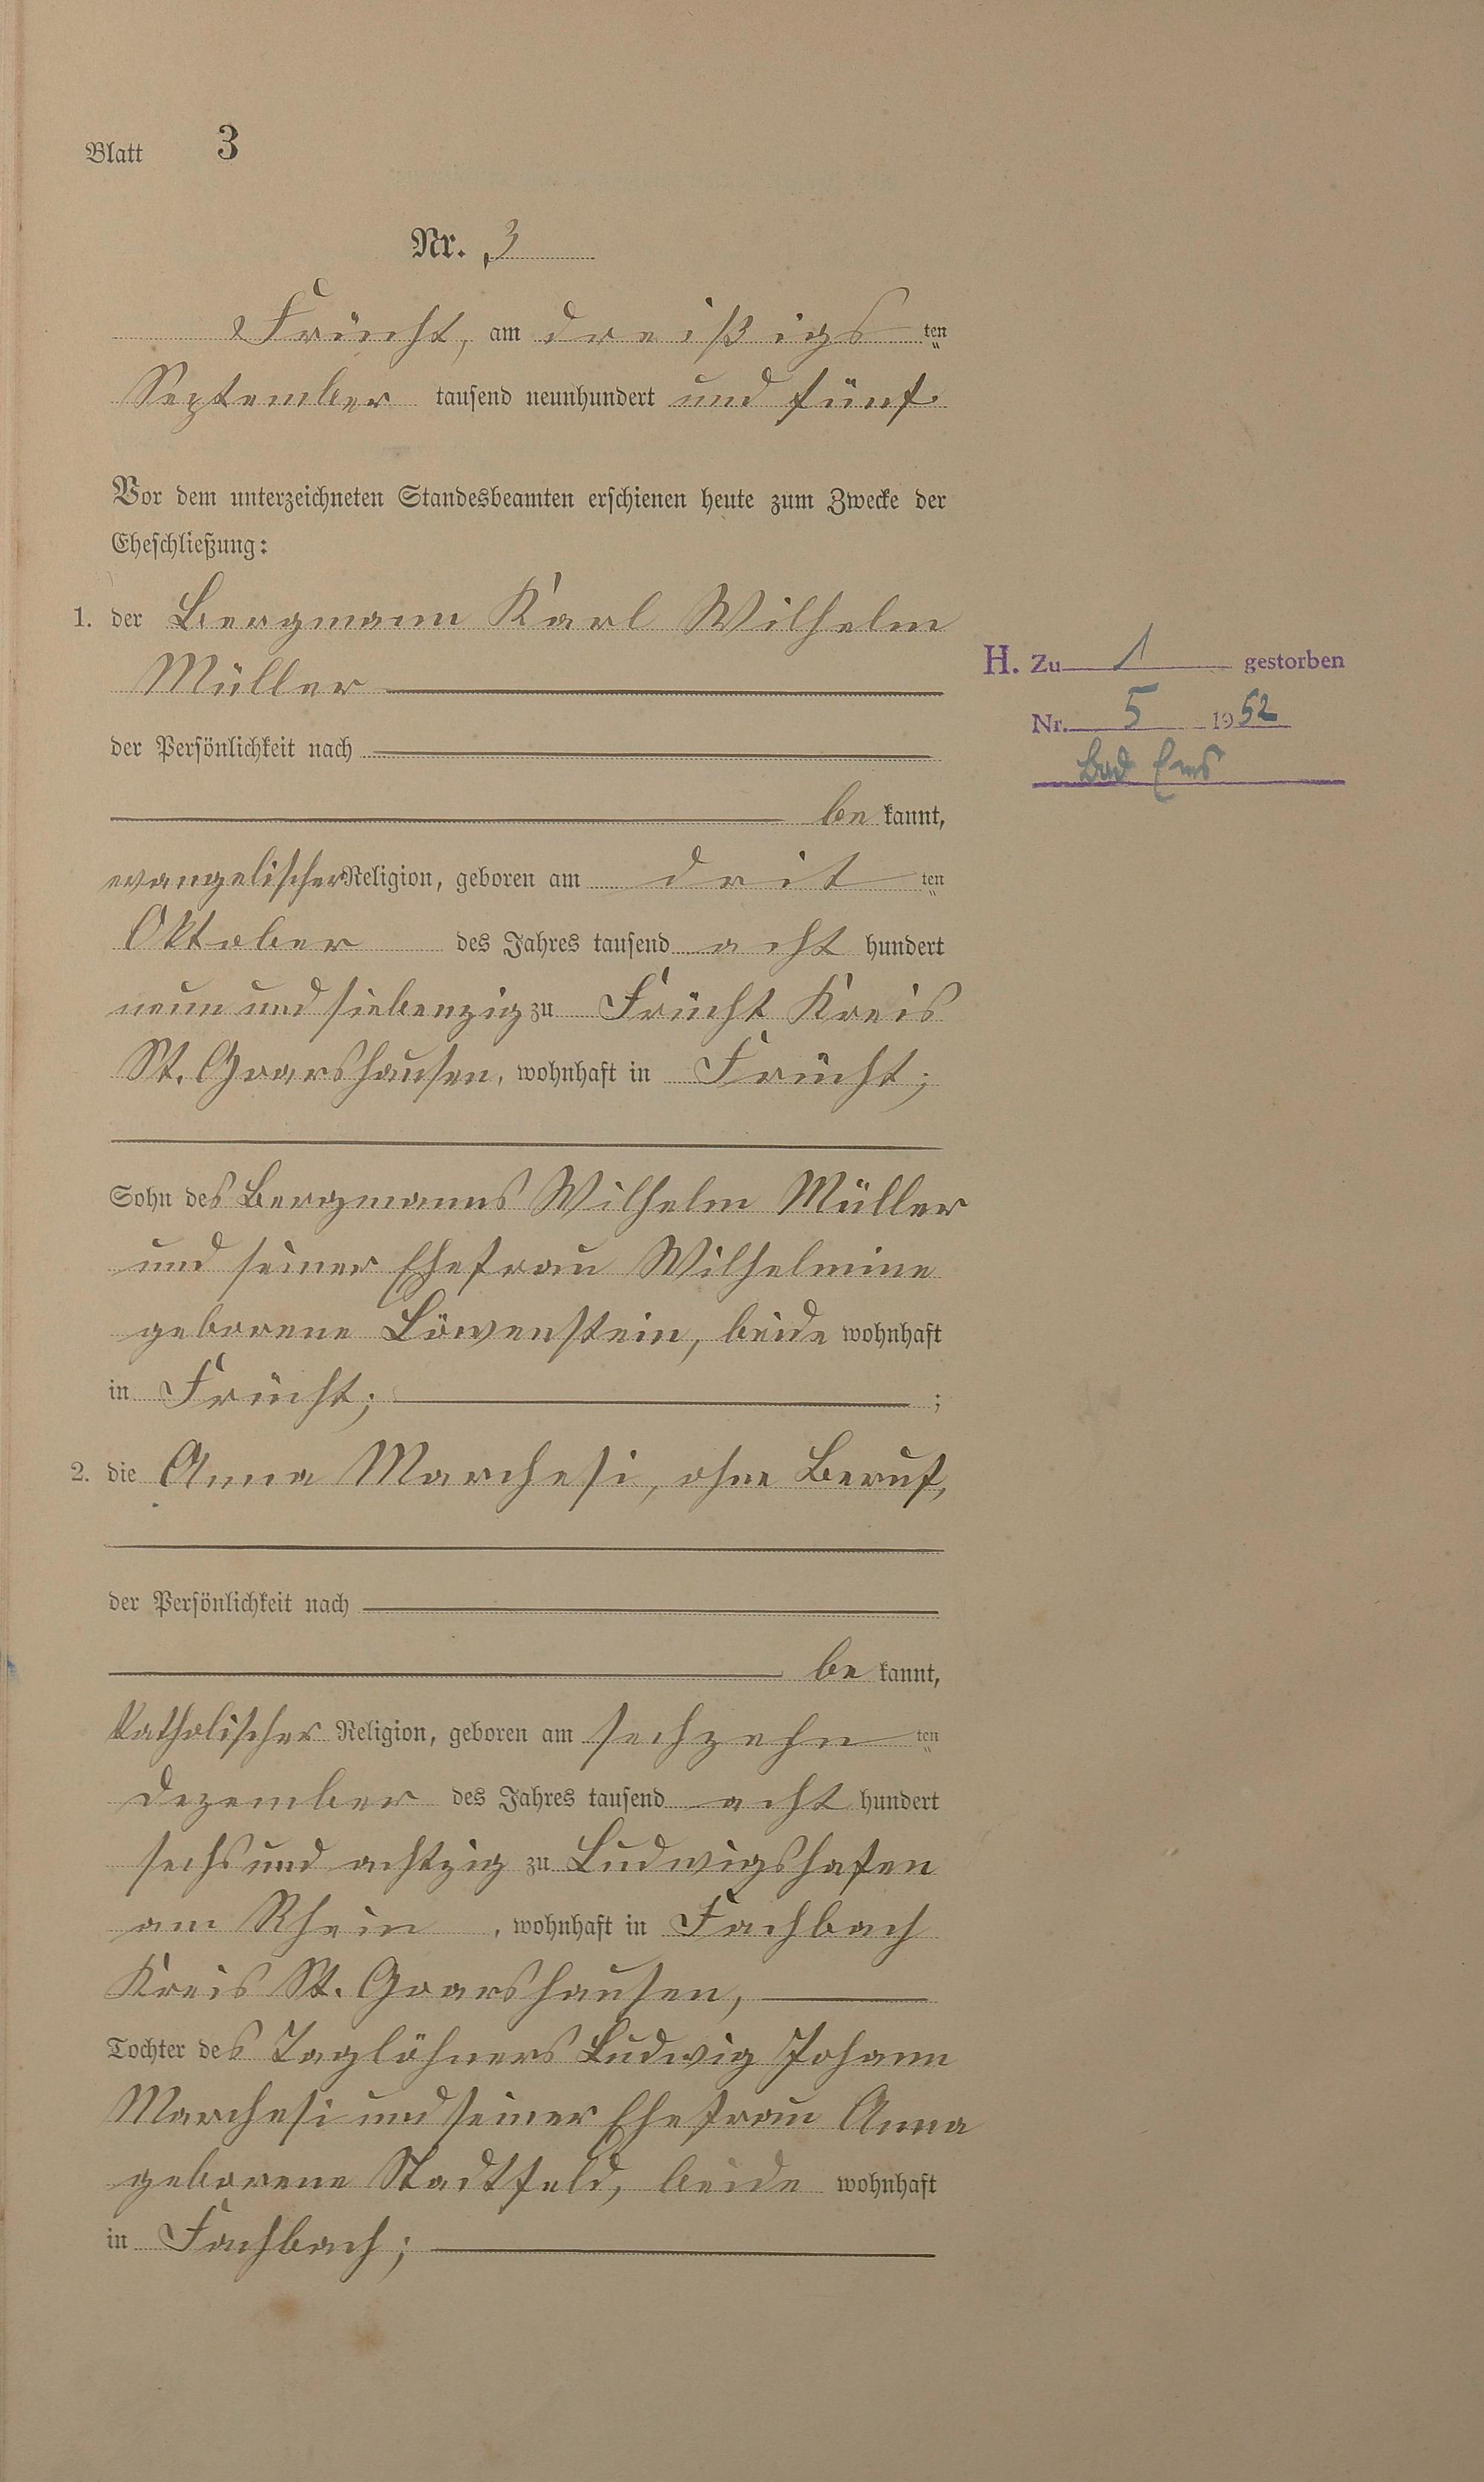 Blatt 3
Nr. 3
Frücht, am dreißigs ten
September tausend neunhundert und fünf.
Vor dem unterzeichneten Standesbeamten erschienen heute zum Zwecke der
Eheschließung:
1. der Bergmann Karl Wilhelm
Müller
der Persönlichkeit nach
be kannt,
evangelischer Religion, geboren am drit ten
Oktober des Jahres tausend acht hundert
neun und siebenzig zu Frücht Kreis
St. Goarshausen, wohnhaft in Frücht;
Sohn des Bergmanns Wilhelm Müller
und seiner Ehefrau Wilhelmine
geborene Löwenstein, beide wohnhaft
in Frücht; ;
2. die Anna Marchesi, ohne Beruf,
der Persönlichkeit nach
be kannt,
katholischer Religion, geboren am sechzehn ten
Dezember des Jahres tausend acht hundert
sechs und achtzig zu Ludwigshafen
am Rhein, wohnhaft in Fachbach
Kreis St. Goarshausen,
Tochter des Taglöhners Ludwig Johann
Marchesi und seiner Ehefrau Anna
geborene Stadtfeld, beide wohnhaft
in Fachbach;
H. Zu 1 gestorben
Nr. 5 1952
Bad Ems